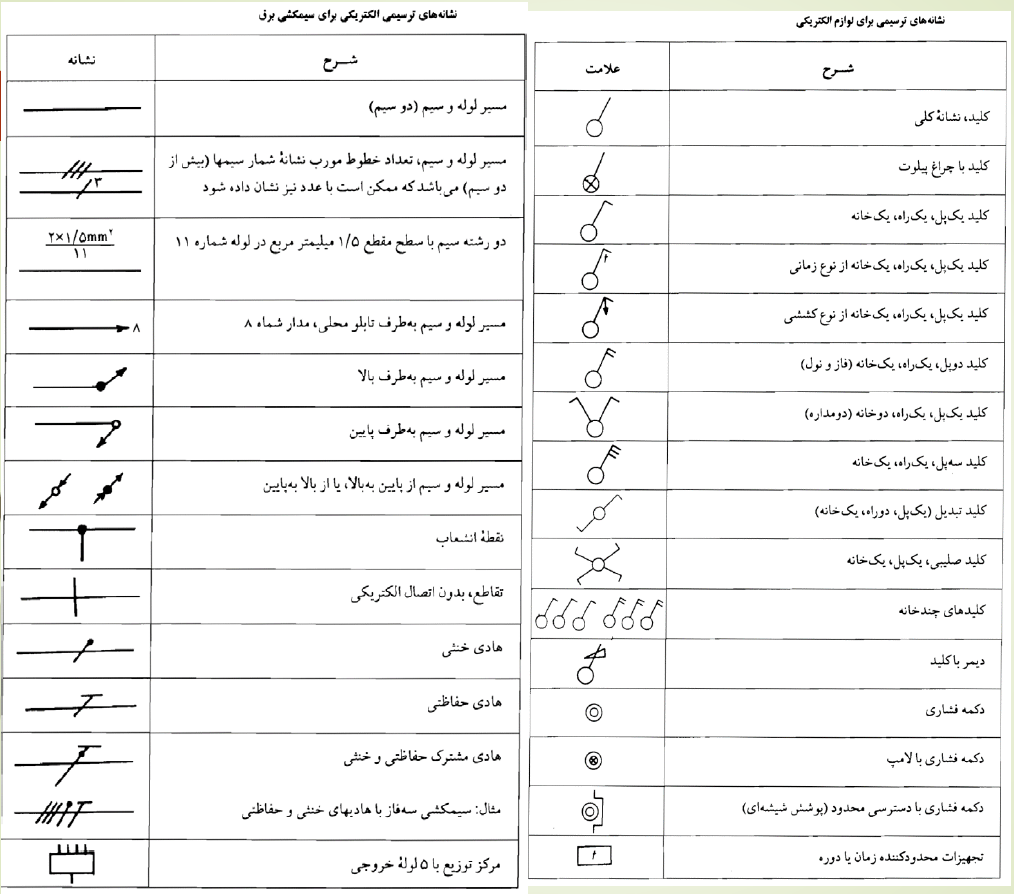 نشانه‌های ترسیمی برای لوازم الکتریکی
شـــرح
علامت
کلید، نشانهٔ کلی
کلید با چراغ پیلوت
کلید یک‌پل، یک‌راه، یک‌خانه
کلید یک‌پل، یک‌راه، یک‌خانه از نوع زمانی
t
کلید یک‌پل، یک‌راه، یک‌خانه از نوع کششی
کلید دوپل، یک‌راه، یک‌خانه (فاز و نول)
کلید یک‌پل، یک‌راه، دوخانه (دومداره)
کلید سه‌پل، یک‌راه، یک‌خانه
کلید تبدیل (یک‌پل، دوراه، یک‌خانه)
کلید صلیبی، یک‌پل، یک‌خانه
کلیدهای چندخانه
دیمر با کلید
دکمه فشاری
دکمه فشاری با لامپ
دکمه فشاری با دسترسی محدود (پوشش شیشه‌ای)
تجهیزات محدودکننده زمان یا دوره
t
نشانه‌های ترسیمی الکتریکی برای سیمکشی برق
شـــرح
نشانه
مسیر لوله و سیم (دو سیم)
مسیر لوله و سیم، تعداد خطوط مورب نشانهٔ شمار سیمها (بیش از
دو سیم) می‌باشد که ممکن است با عدد نیز نشان داده شود
۳
دو رشته سیم با سطح مقطع ۱/۵ میلیمتر مربع در لوله شماره ۱۱
۲×۱/۵mm۲
۱۱
مسیر لوله و سیم به‌طرف تابلو محلی، مدار شماه ۸
۸
مسیر لوله و سیم به‌طرف بالا
مسیر لوله و سیم به‌طرف پایین
مسیر لوله و سیم از پایین به‌بالا، یا از بالا به‌پایین
نقطهٔ انشعاب
تقاطع، بدون اتصال الکتریکی
هادی خنثی
هادی حفاظتی
هادی مشترک حفاظتی و خنثی
مثال: سیمکشی سه‌فاز با هادیهای خنثی و حفاظتی
مرکز توزیع با ۵ لولهٔ خروجی